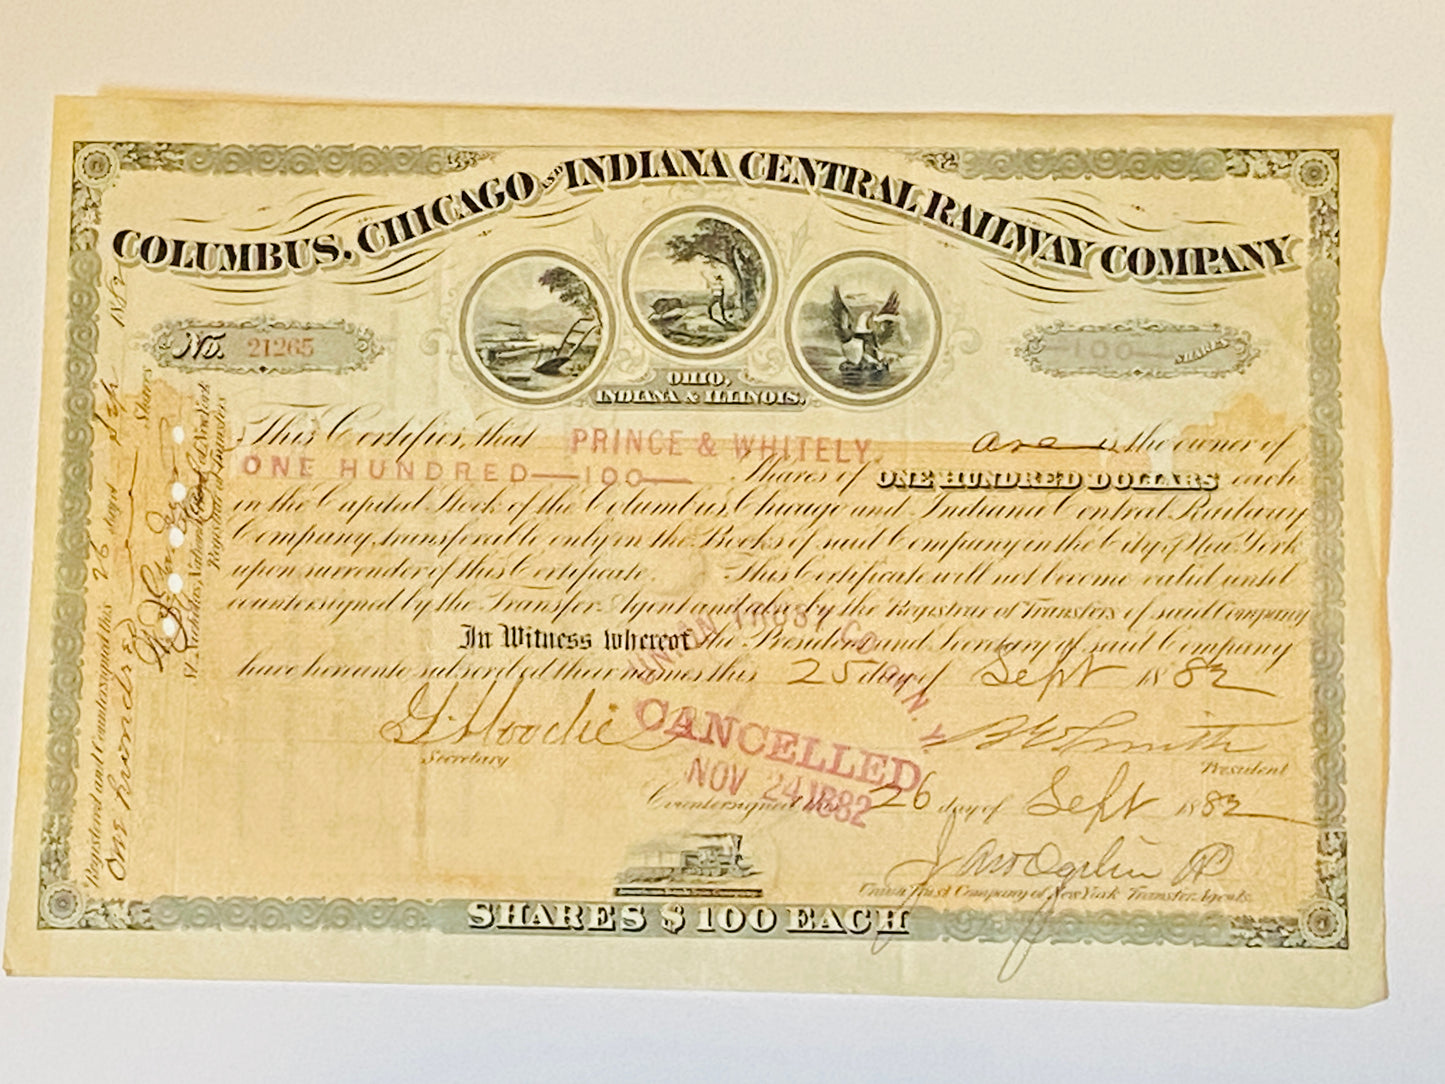 COLUMBUS, CHICAGO AND INDIANA CENTRAL RAILWAY COMPANY
No. 21265
100 SHARES
OHIO,
INDIANA & ILLINOIS.
This Certifies, that PRINCE & WHITELY. are the owner of
ONE HUNDRED—100— Shares of ONE HUNDRED DOLLARS each
in the Capital Stock of the Columbus, Chicago and Indiana Central Railway
Company, transferable only on the Books of said Company in the City of New York
upon surrender of this Certificate. This Certificate will not become valid until
countersigned by the Transfer Agent and also by the Registrar of Transfers of said Company
In Witness whereof the President and Secretary of said Company
have hereunto subscribed their names this 25 day of Sept 1882
Secretary
B W Smith
President
UNION TRUST CO. N.Y.
CANCELLED
NOV 24 1882
Countersigned this 26 day of Sept 1882
Union Trust Company of New York Transfer Agents.
American Bank Note Company
SHARES $100 EACH
Registered and Countersigned this 26 day of Sept 1882
One hundred Shares
St. Nicholas National Bank of New York
Registrar of Transfers